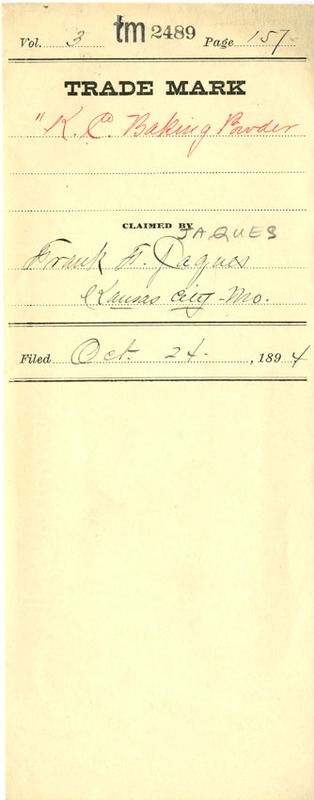 Vol. 3 tm 2489 Page 157
TRADE MARK
"K. C. Baking Powder
CLAIMED BY
JAQUES
Frank F. Jaques
Kansas City - Mo.
Filed Oct. 24. , 1894